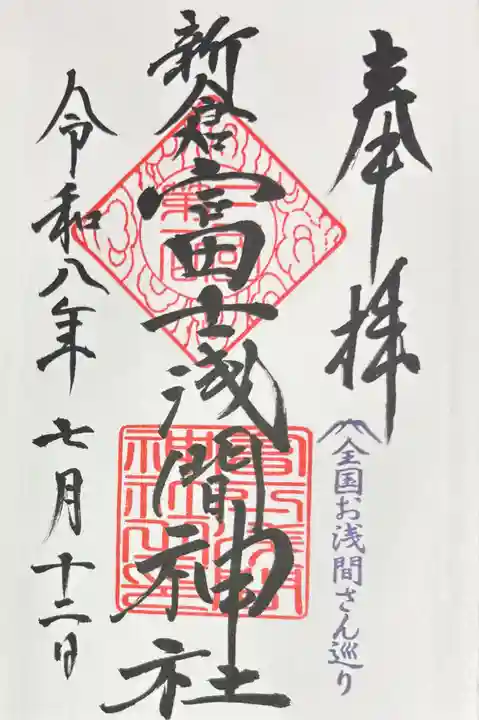 奉拝
全国お浅間さん巡り
新倉富士浅間神社
令和八年七月十二日